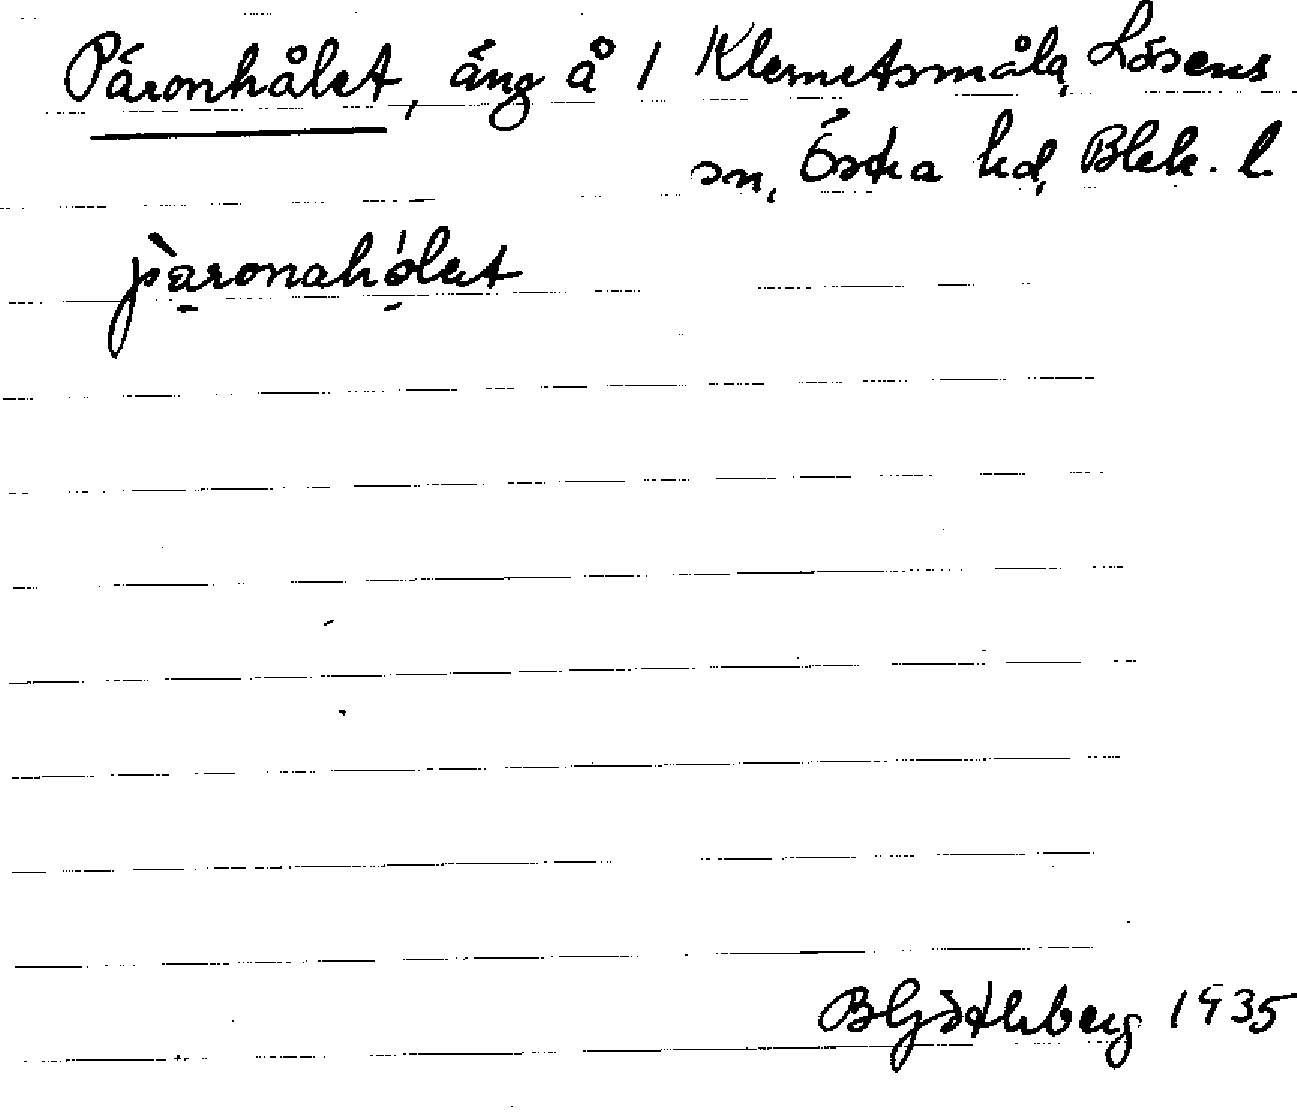 Päronhålet, äng å 1 Klemetsmåla, Lösens
sn, Östra hd, Blek. l.
pàronahólet
BGöthberg 1935